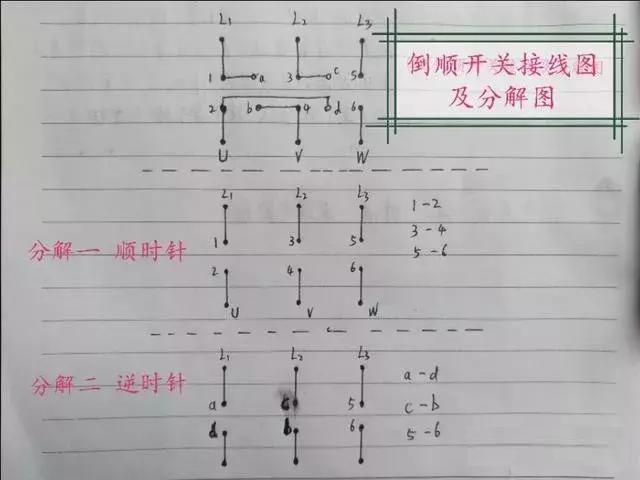 L1 L2 L3
倒顺开关接线图
及分解图
1 a 3 c 5
2 b 4 d 6
U V W
L1 L2 L3
1-2
3-4
5-6
分解一 顺时针
1 3 5
2 4 6
U V W
L1 L2 L3
a-d
分解二 逆时针
a c 5
c-b
d b 6
5-6